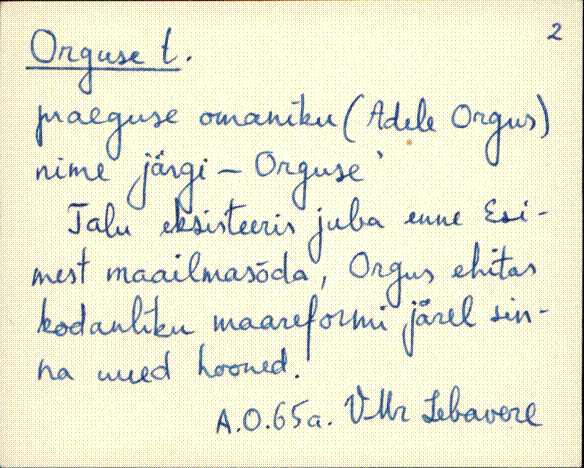 2
Orguse t.
praeguse omaniku (Adele Orgus)
nime järgi – Orguse`
Talu eksisteeris juba enne Esi-
mest maailmasõda, Orgus ehitas
kodanliku maareformi järel sin-
na uued hooned.
A.O.65a. VMr Lebavere